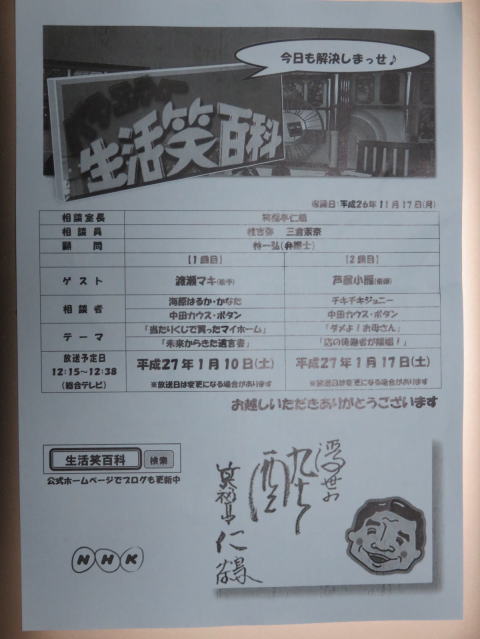 今日も解決しまっせ♪
生活笑百科
収録日：平成26年11月17日(月)
相談室長 笑福亭仁鶴
相談員 桂吉弥 三倉茉奈
顧問 林一弘(弁護士)
【1週目】 【2週目】
ゲスト 渡瀬マキ(歌手) 芦屋小雁(俳優)
相談者 海原はるか・かなた チキチキジョニー
中田カウス・ボタン 中田カウス・ボタン
テーマ 「当たりくじで買ったマイホーム」 「ダメよ！お母さん」
「未来からきた遺言書」 「店の後継者が結婚！」
放送予定日
12:15～12:38
(総合テレビ)
平成27年1月10日(土) 平成27年1月17日(土)
※放送日は変更になる場合があります ※放送日は変更になる場合があります
お越しいただきありがとうございます
生活笑百科 検索
公式ホームページでブログも更新中
笑福亭 仁鶴
NHK